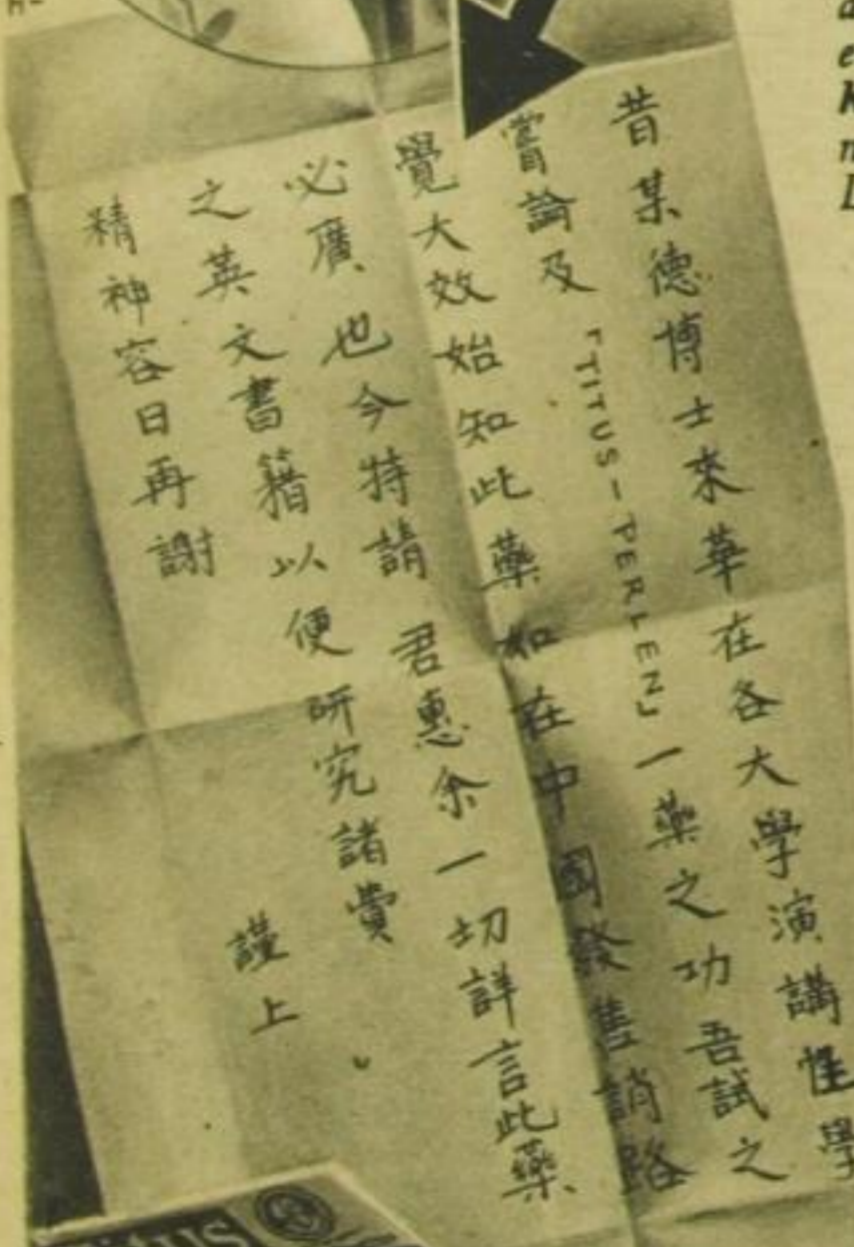 昔某德博士來華在各大學演講性學
嘗論及「TITUS-PERLEN」一藥之功吾試之
覺大效始知此藥如在中國發售銷路
必廣也今特請 君惠余一切詳言此藥
之英文書籍以便研究諸費
精神容日再謝
謹上